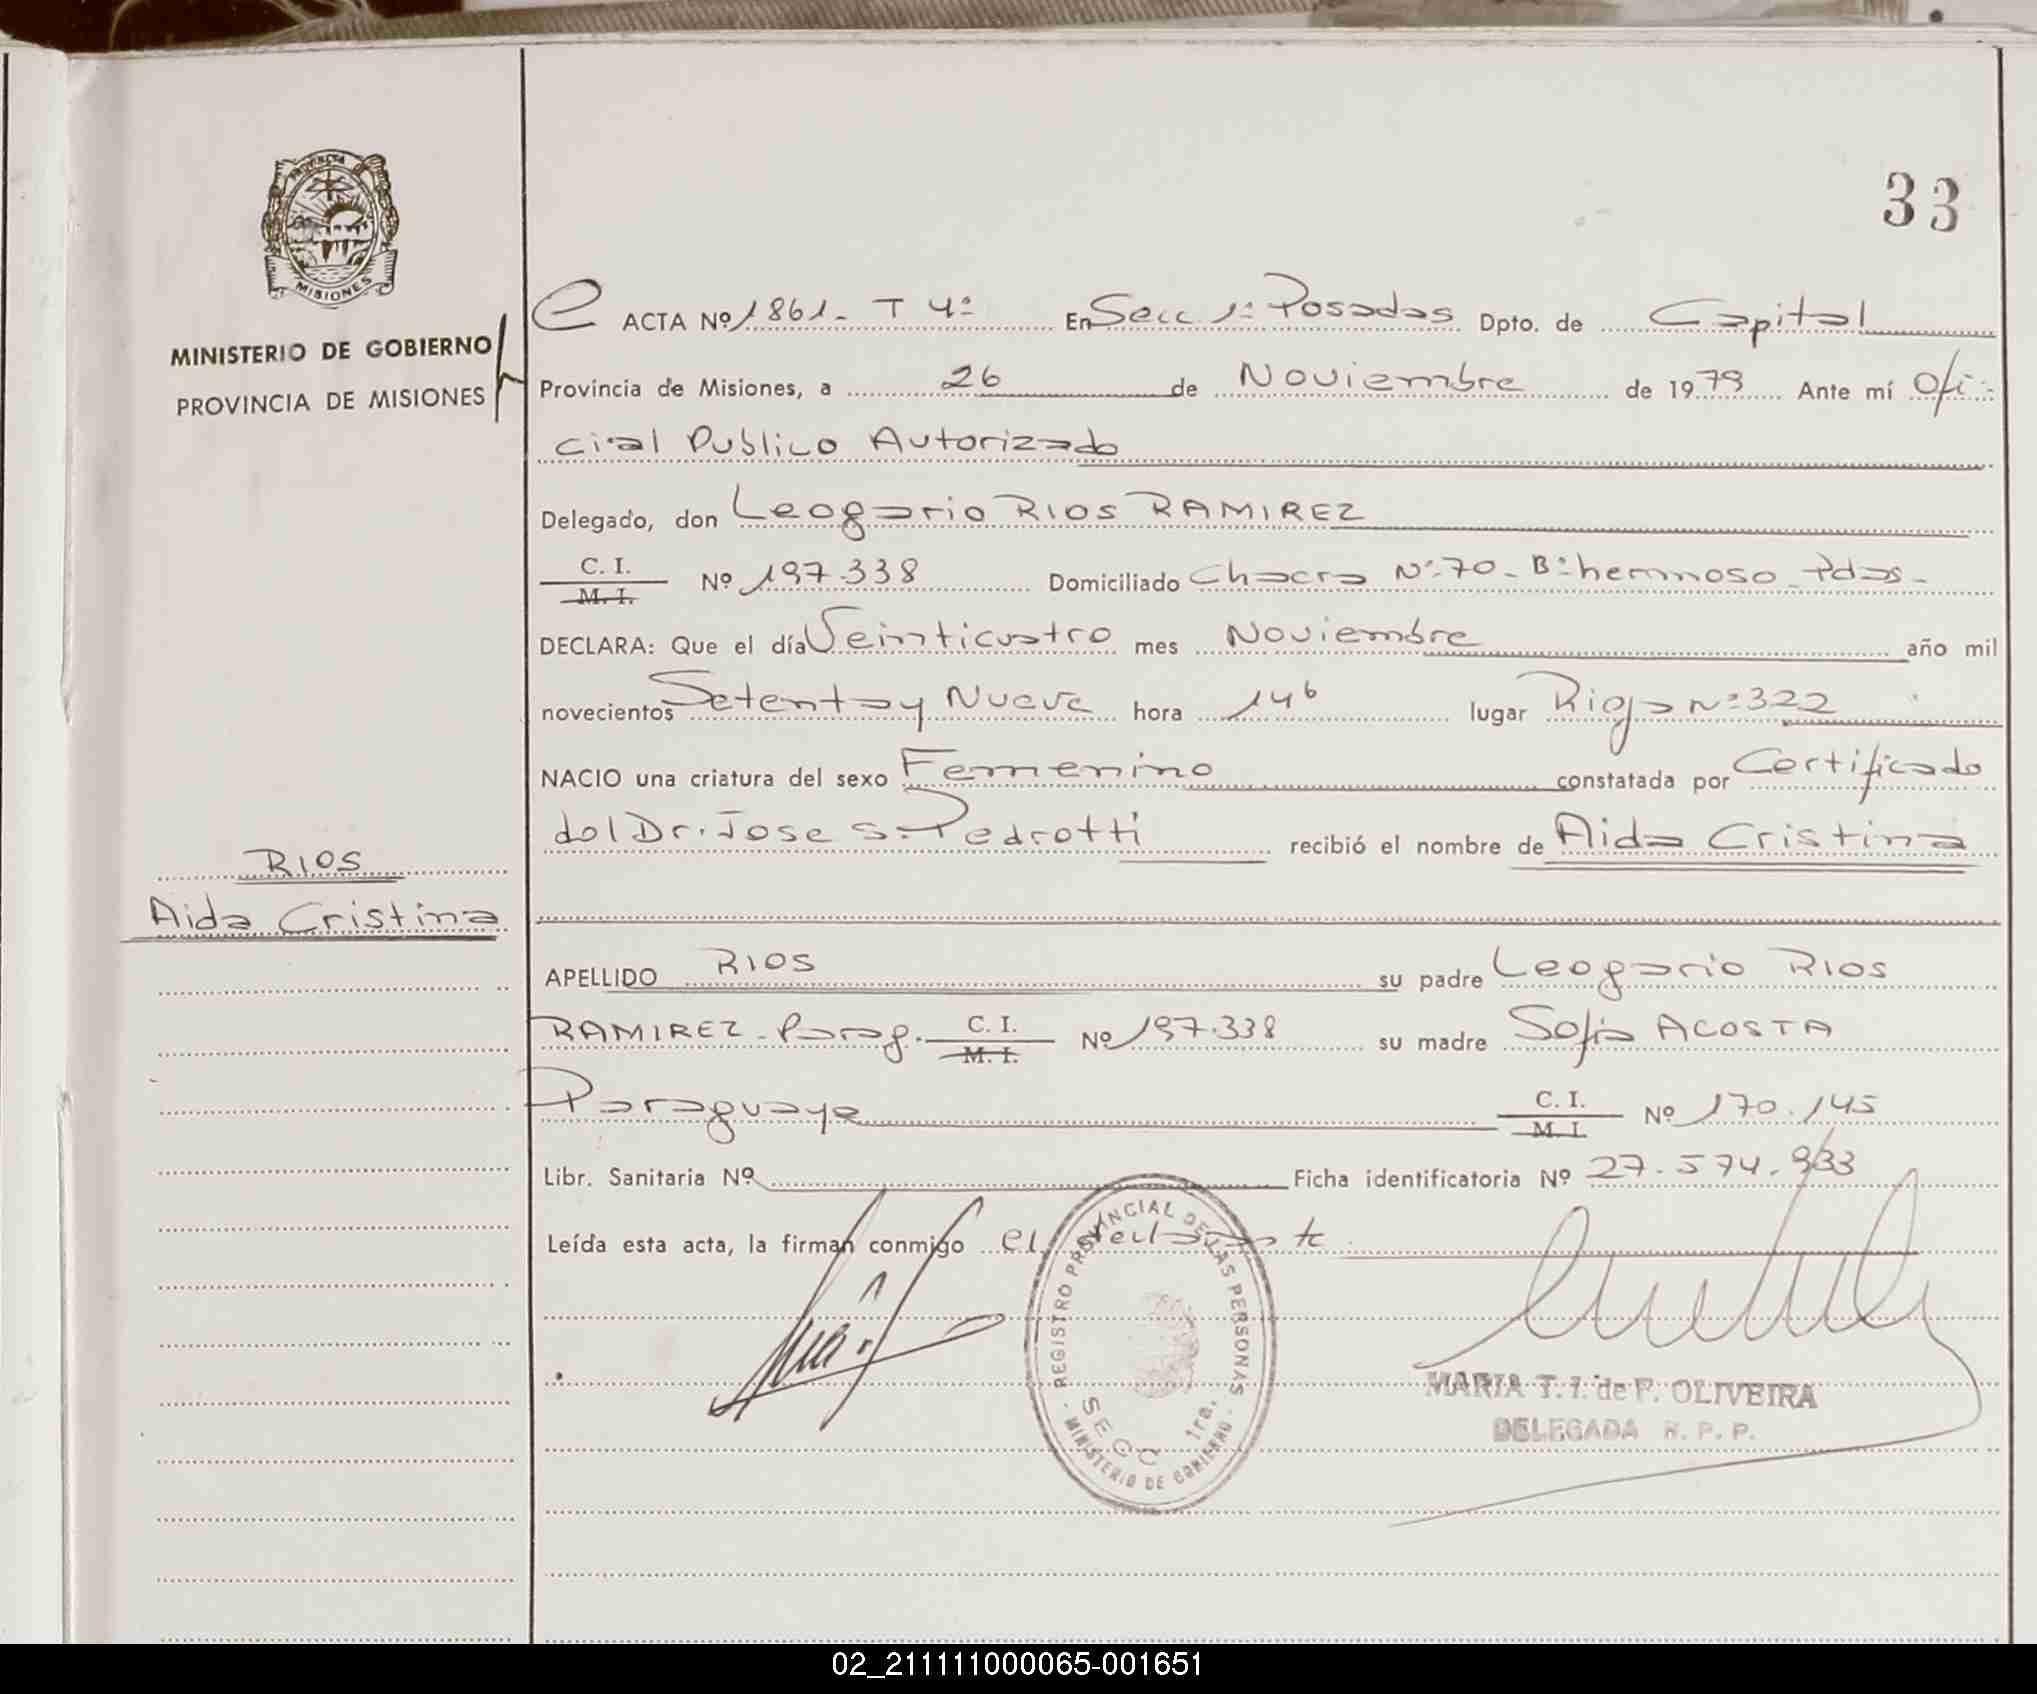 33
PROVINCIA
MISIONES
MINISTERIO DE GOBIERNO
PROVINCIA DE MISIONES
RIOS
Aida Cristina
ACTA Nº 1861- T 4º En Secc 1ª Posadas Dpto. de Capital
Provincia de Misiones, a 26 de Noviembre de 1979 Ante mí Ofi-
cial Publico Autorizado
Delegado, don Leogario RIOS RAMIREZ
C. I.
M. I. Nº 197.338 Domiciliado Chacra Nº 70- Bº hermoso- Pdas-
DECLARA: Que el día Veinticuatro mes Noviembre año mil
novecientos Setenta y Nueve hora 14 lugar Rioja Nº 322
NACIO una criatura del sexo Femenino constatada por Certificado
del Dr. Jose S. Pedrotti recibió el nombre de Aida Cristina
APELLIDO RIOS su padre Leogario RIOS
RAMIREZ- Parag. C. I. M. I. Nº 197.338 su madre Sofia ACOSTA
Paraguaya C. I. M. I. Nº 170.145
Libr. Sanitaria Nº Ficha identificatoria Nº 27.574.933
Leída esta acta, la firman conmigo el declarante
REGISTRO PROVINCIAL DE LAS PERSONAS
SECC 1ra.
MINISTERIO DE GOBIERNO
MARIA T. I. de F. OLIVEIRA
DELEGADA R. P. P.
02_211111000065-001651